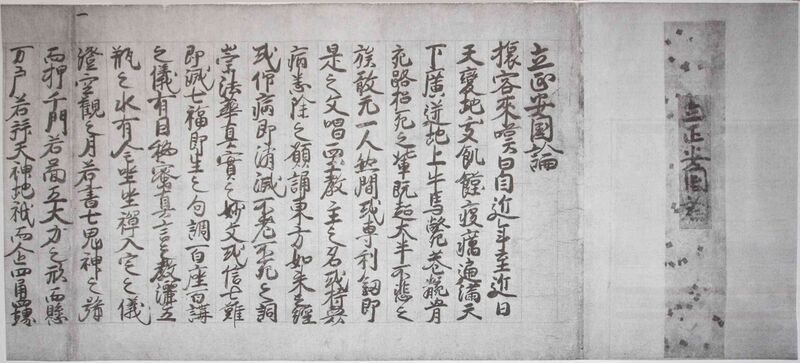 立正安国論
立正安国論
旅客來嘆曰自近年至近日
天變地夭飢饉疫癘遍滿天
下廣迸地上牛馬斃巷骸骨
充路招死之輩既超大半不悲之
族敢无一人然間或専利釼即
是之文唱西土教主之名或持衆
病悉除之願誦東方如来之經
或仰病即消滅不老不死之詞
崇法華真實之妙文或信七難
即滅七福即生之句調百座百講
之儀有因秘密真言之教灑五
瓶之水有全坐禪入定之儀
澄空觀之月若書七鬼神之号
而押千門若啚五大力之形而懸
万戸若拝天神地祇而企四角四堺